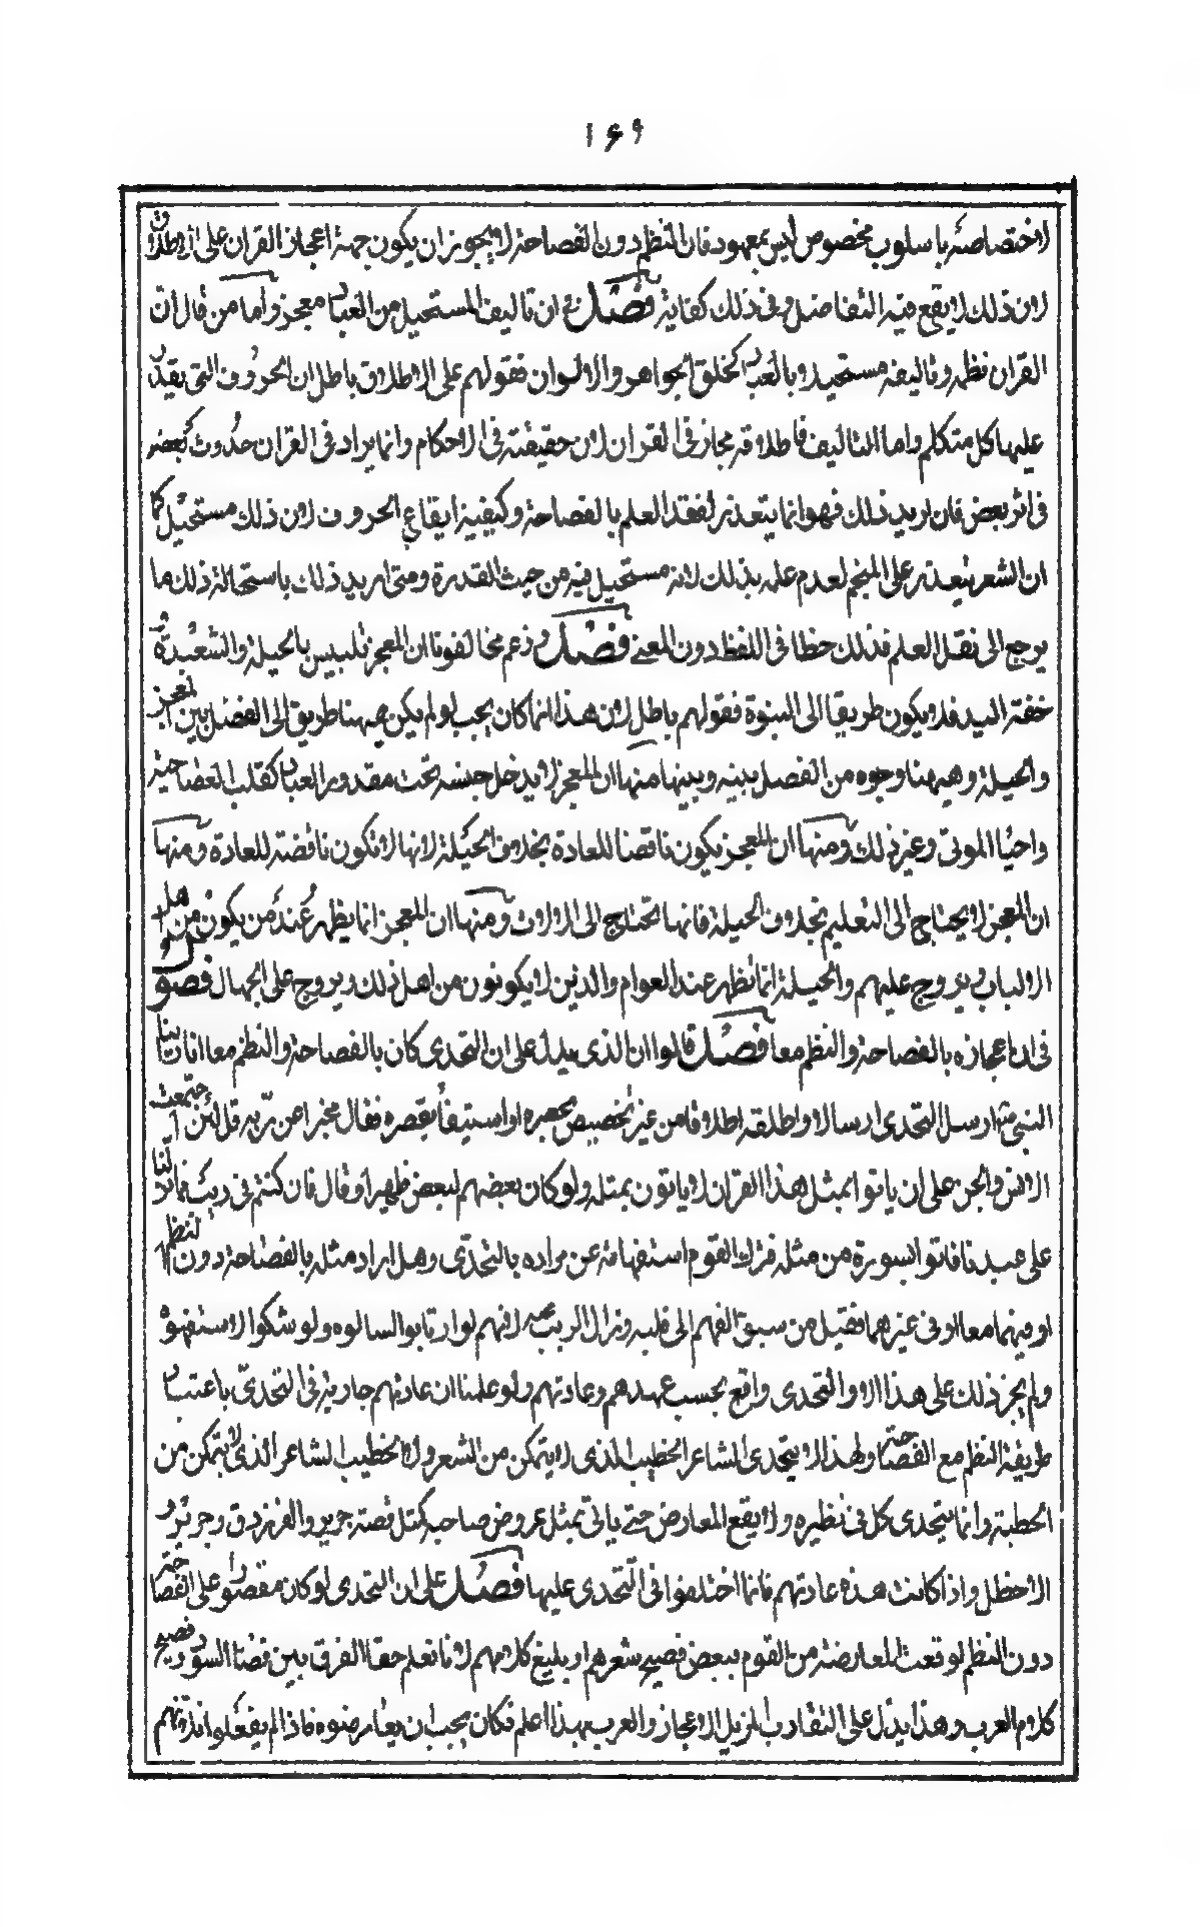 ١۶٩
لاختصاصه باسلوب مخصوص ليس بمعهود فان النظم دون الفصاحة لا يجوز ان يكون جهة اعجاز القران على الاطلاق
لان ذلك لا يقع فيه التفاضل وفى ذلك كفاية فصل ثم ان تاليف المستحيل من العباد معجز واما من قال ان
القران نظمه وتاليفه مستحيل بالعباد كخلق الجواهر والالوان فقولهم على الاطلاق باطل ان الحروف التى يقدر
عليها كل متكلم واما التاليف فاطلاقه مجاز فى القران لان حقيقته فى الاحكام وانما يراد فى القران حدوث بعضه
فى اثر بعض فان اريد ذلك فهو انما يتعذر لفقد العلم بالفصاحة وكيفية ايقاع الحروف لان ذلك مستحيل كما
ان الشعر يتعذر على المفحم لعدم علمه بذلك لانه مستحيل فيه من حيث القدرة ومتى اريد ذلك باستحالة ذلك ما
يرجع الى نقل العلم فذلك خطا فى اللفظ دون المعنى فصل وزعم مخالفونا ان المعجز تلبيس بالحيلة والشعبدة و
خفة اليد فلا يكون طريقا الى النبوة فقولهم باطل لان هذا انما كان يجب لو لم يكن ههنا طريق الى الفصل بين المعجز
والحيلة وههنا وجوه من الفصل بينه وبينها منها ان المعجز لا يدخل جنسه تحت مقدور العباد كقلب العصا حية
واحياء الموتى وغير ذلك ومنها ان المعجز يكون ناقضا للعادة بخلاف الحيلة لانها لا تكون ناقضة للعادة ومنها
ان المعجز لا يحتاج الى التعليم بخلاف الحيلة فانها تحتاج الى الالات ومنها ان المعجز انما يظهر عند من يكون من اهل
الالباب ويروج عليهم والحيلة انما تظهر عند العوام والذين لا يكونون من اهل ذلك ويروج على الجهال فصول
فى ان اعجازه بالفصاحة والنظم معا فصل قالوا ان الذى يدل على ان التحدى كان بالفصاحة والنظم معا انا راينا
النبى ص ارسل التحدى ارسالا واطلقه اطلاقا من غير تخصيص يحصره او استيفاء يقصره فقال مخبرا عن ربه قل لئن اجتمعت
الانس والجن على ان ياتوا بمثل هذا القران لا ياتون بمثله ولو كان بعضهم لبعض ظهيرا وقال فان كنتم فى ريب مما نزلنا
على عبدنا فاتوا بسورة من مثله فترك القوم استفهامه عن مراده بالتحدى وهل اراد مثله بالفصاحة دون النظم
او فيهما معا او فى غيرهما فقيل من سبق الفهم الى قلبه وزال الريب عنه لانهم لو ارتابوا لسالوه ولو شكوا لاستفهموه
ولم يجز ذلك على هذا الا والتحدى واقع بحسب عهدهم وعادتهم ولو علمنا ان عادتهم جارية فى التحدى باعتبار
طريقة النظم مع الفصاحة ولهذا لا يتحدى الشاعر الخطيب الذى لا يتمكن من الشعر ولا الخطيب الشاعر الذى لا يتمكن من
الخطبة وانما يتحدى كل فى نظيره ولا يقع المعارض حتى ياتى بمثل عروض صاحبه كمثل قصة جرير والفرزدق وجرير و
الاخطل واذا كانت هذه عادتهم فانما اختلفوا فى التحدى عليها فصل على ان التحدى لو كان مقصورا على الفصاحة
دون النظم لوقعت المعارضة من القوم ببعض فصيح شعرهم او بليغ كلامهم لانا نعلم حقا الفرق بين قصار السور وفصيح
كلام العرب وهذا يدل على التقارب المزيل الاعجاز والعرب بهذا اعلم فكان يجب ان يعارضوه فاذا لم يفعلوا